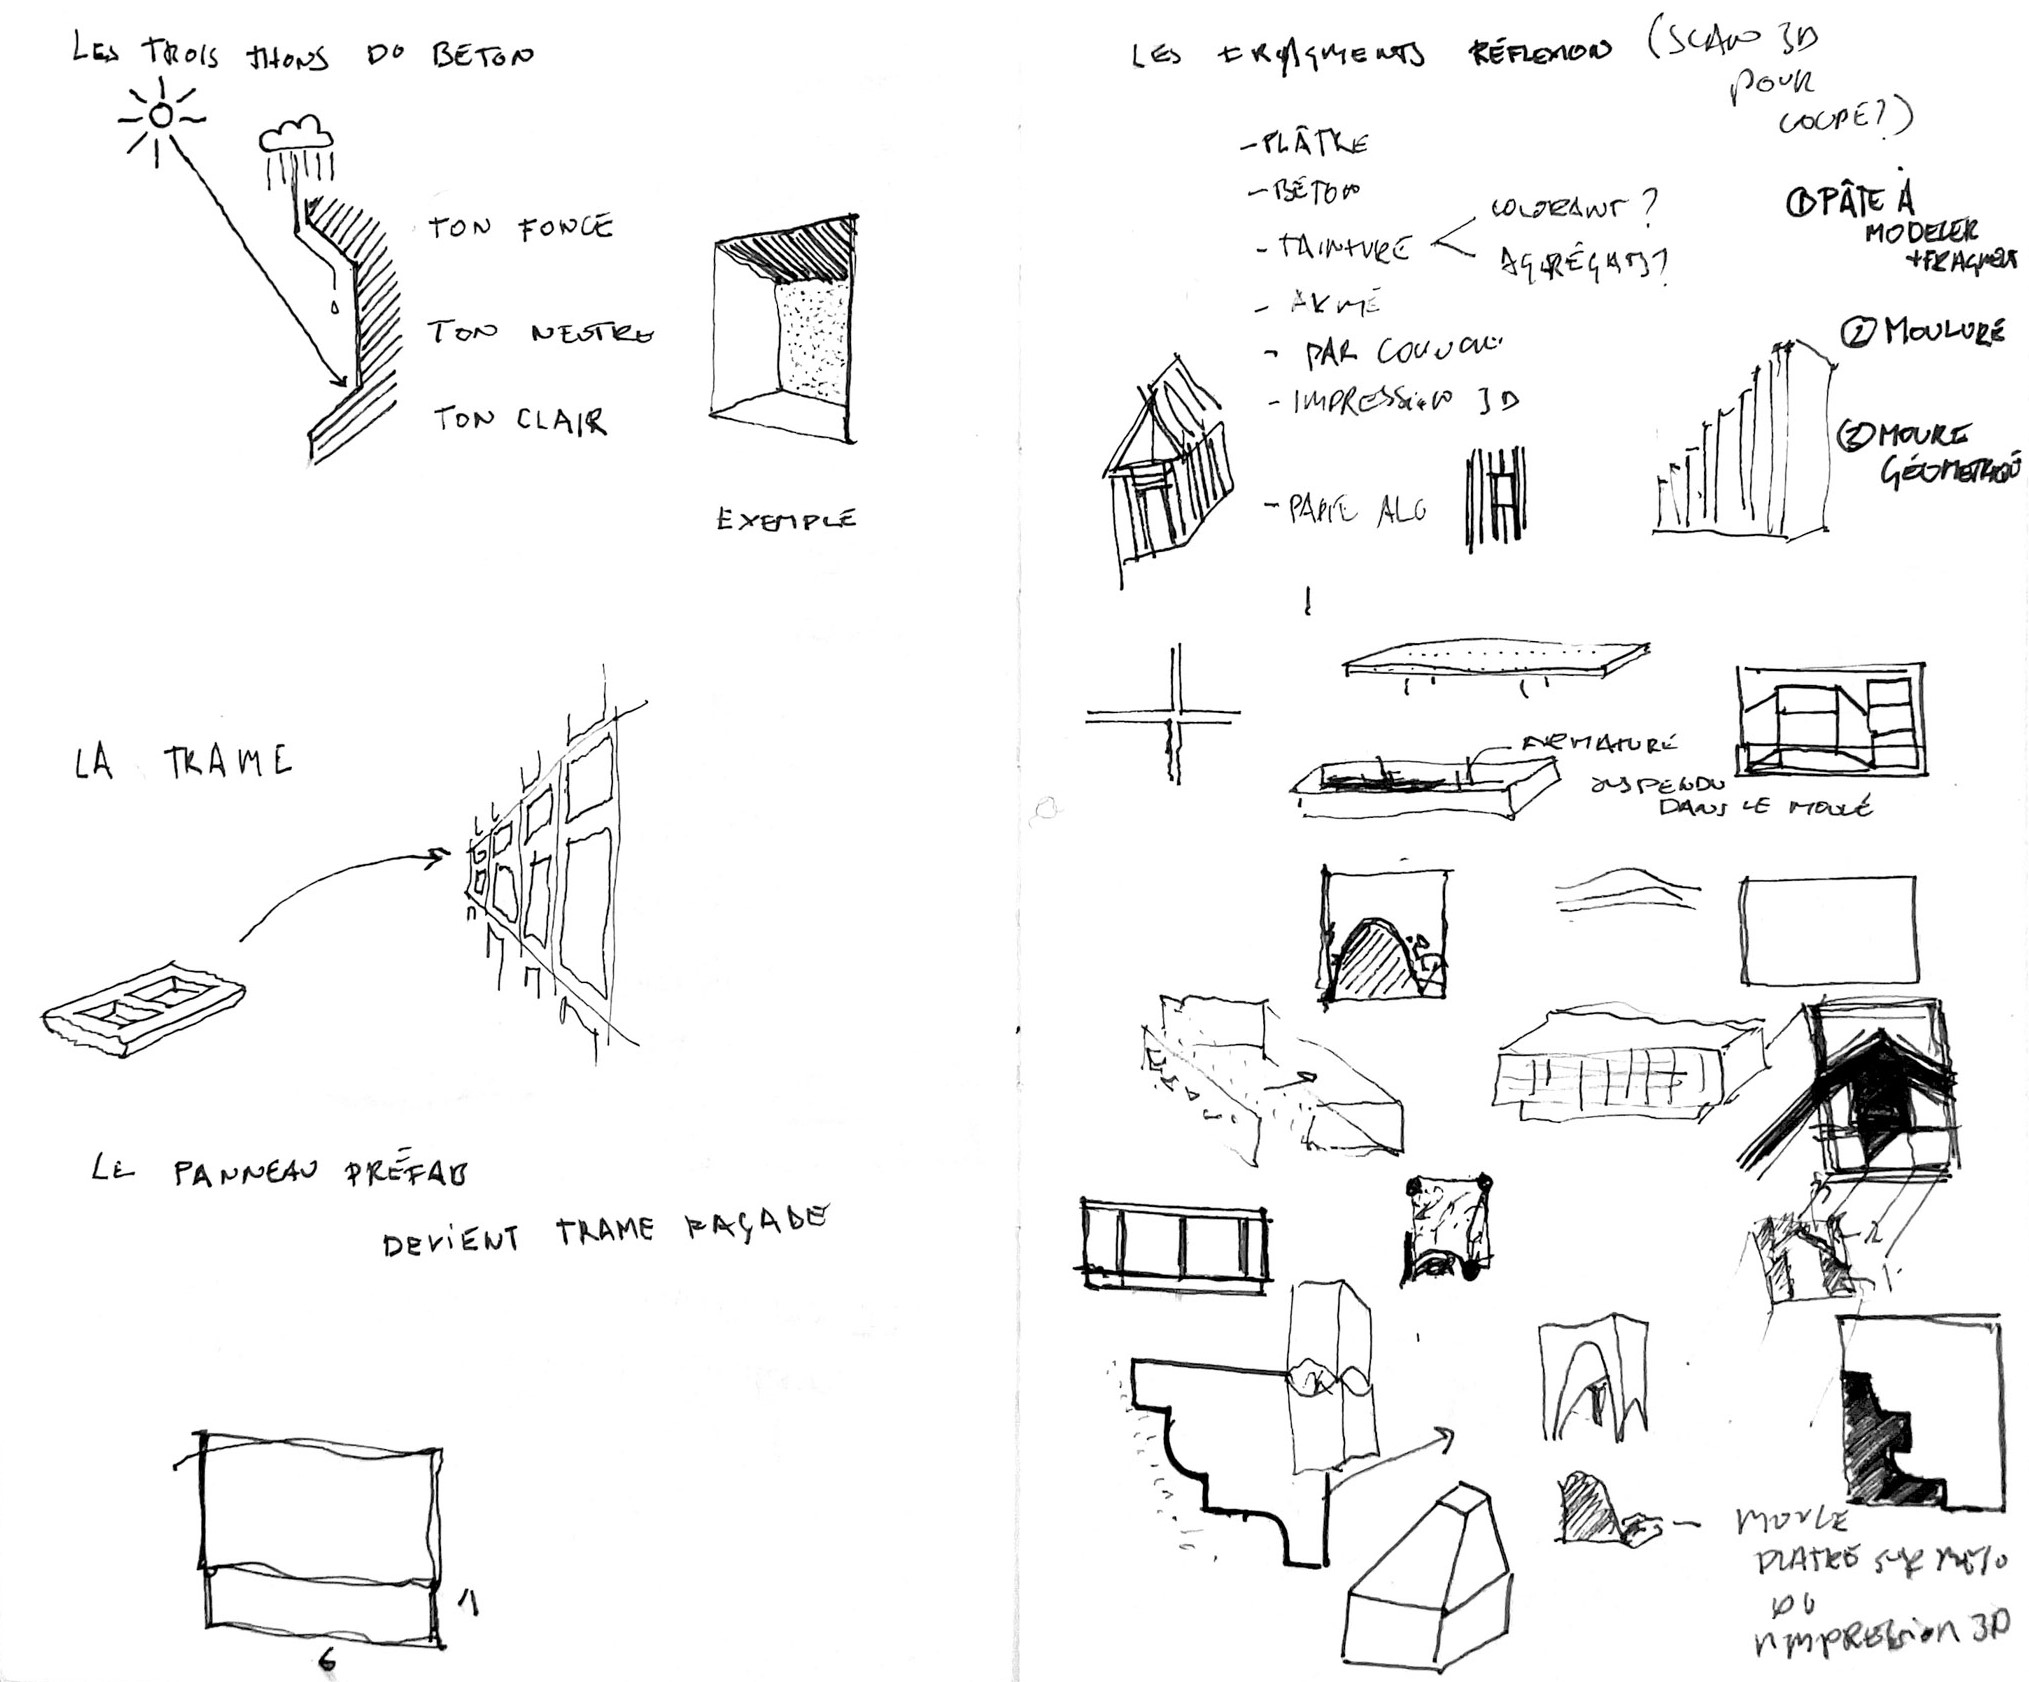 LES TROIS THONS DU BÉTON
TON FONCÉ
TON NEUTRE
TON CLAIR
EXEMPLE
LA TRAME
LE PANNEAU PRÉFAB
DEVIENT TRAME FAÇADE
1
6
LES FRAGMENTS RÉFLEXION (SCAN 3D
POUR
COUPE?)
- PLÂTRE
- BÉTON
- TAINTURE
COLORANT ?
AGRÉGATS?
- ARMÉ
- PAR COUCHE
- IMPRESSION 3D
- PATTE ALG
① PÂTE À
MODELER
+ FRAGMENT
② MOULURE
③ MOURE
GÉOMETRIQUE
ARMATURE
SUSPENDU
DANS LE MOULE
MOULE
PLATRE SUR
OU
IMPRESSION 3D